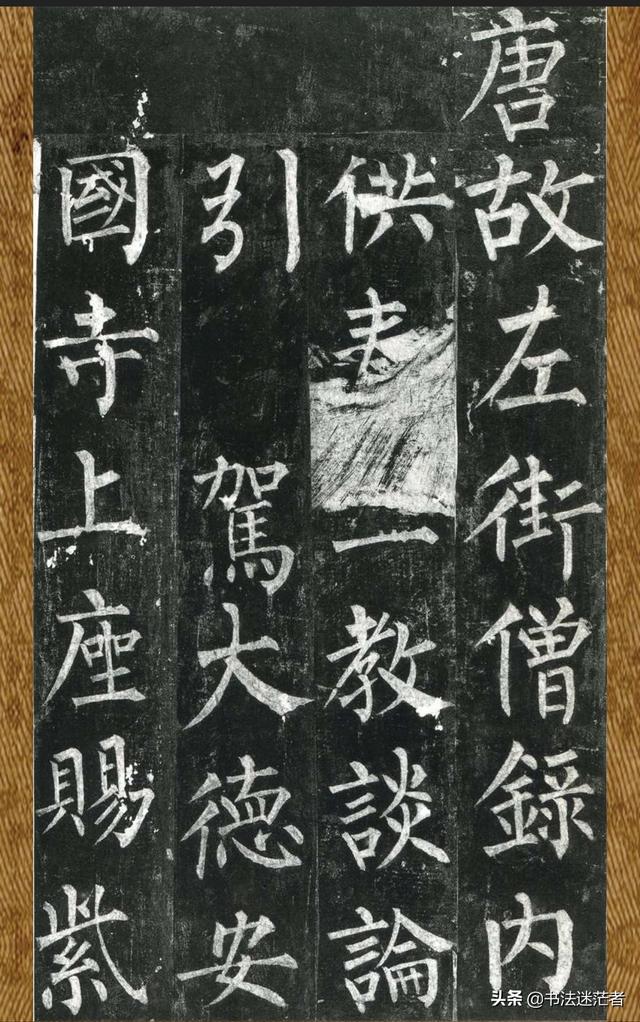 唐故左街僧錄内
供教談論
引駕大德安
國寺上座賜紫
头条 @书法迷茫者